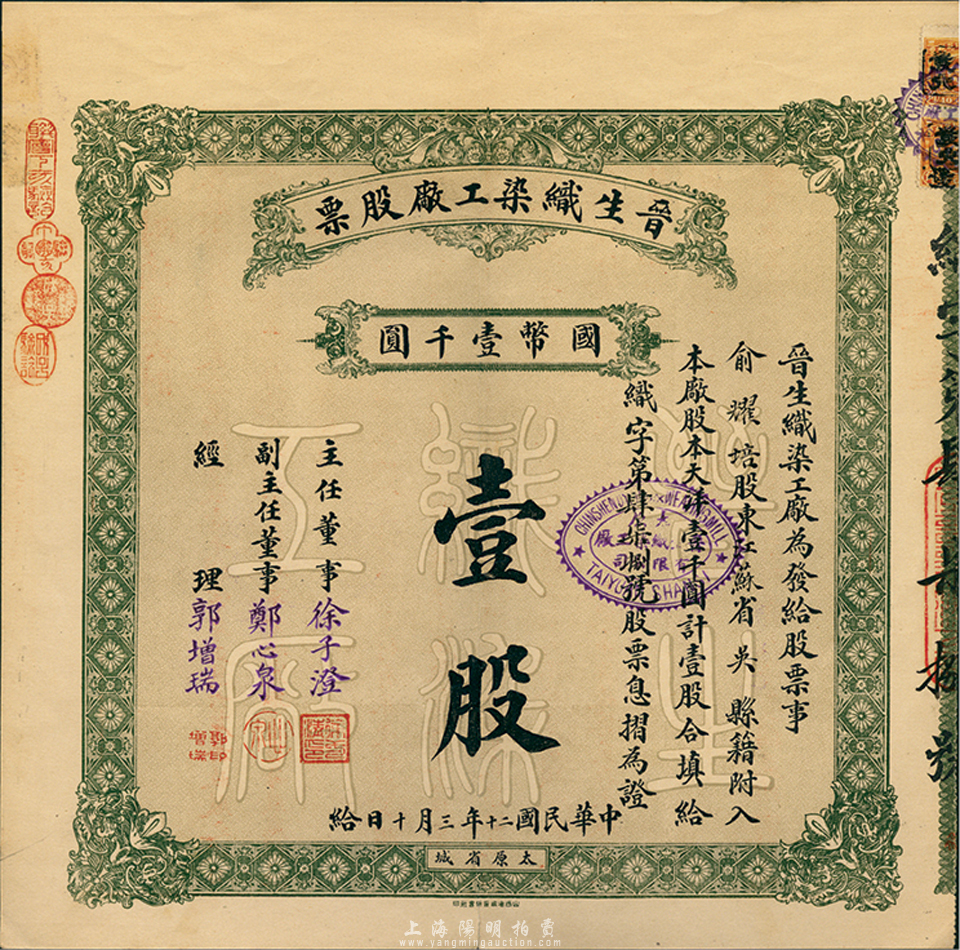 晉生織染工廠股票
國幣壹千圓
晉生織染工廠為發給股票事
俞耀培股東江蘇省吳縣籍附入
本廠股本大洋壹千圓計壹股合填給
織字第肆柒捌號股票息摺為證
壹股
主任董事徐子澄
副主任董事鄭心泉
經理郭增瑞
中華民國二十年三月十日給
太原省城
晉生
織染
工廠
TAIYUAN SHANSI
郭印增瑞
上海陽明拍賣
www.yangmingauction.com